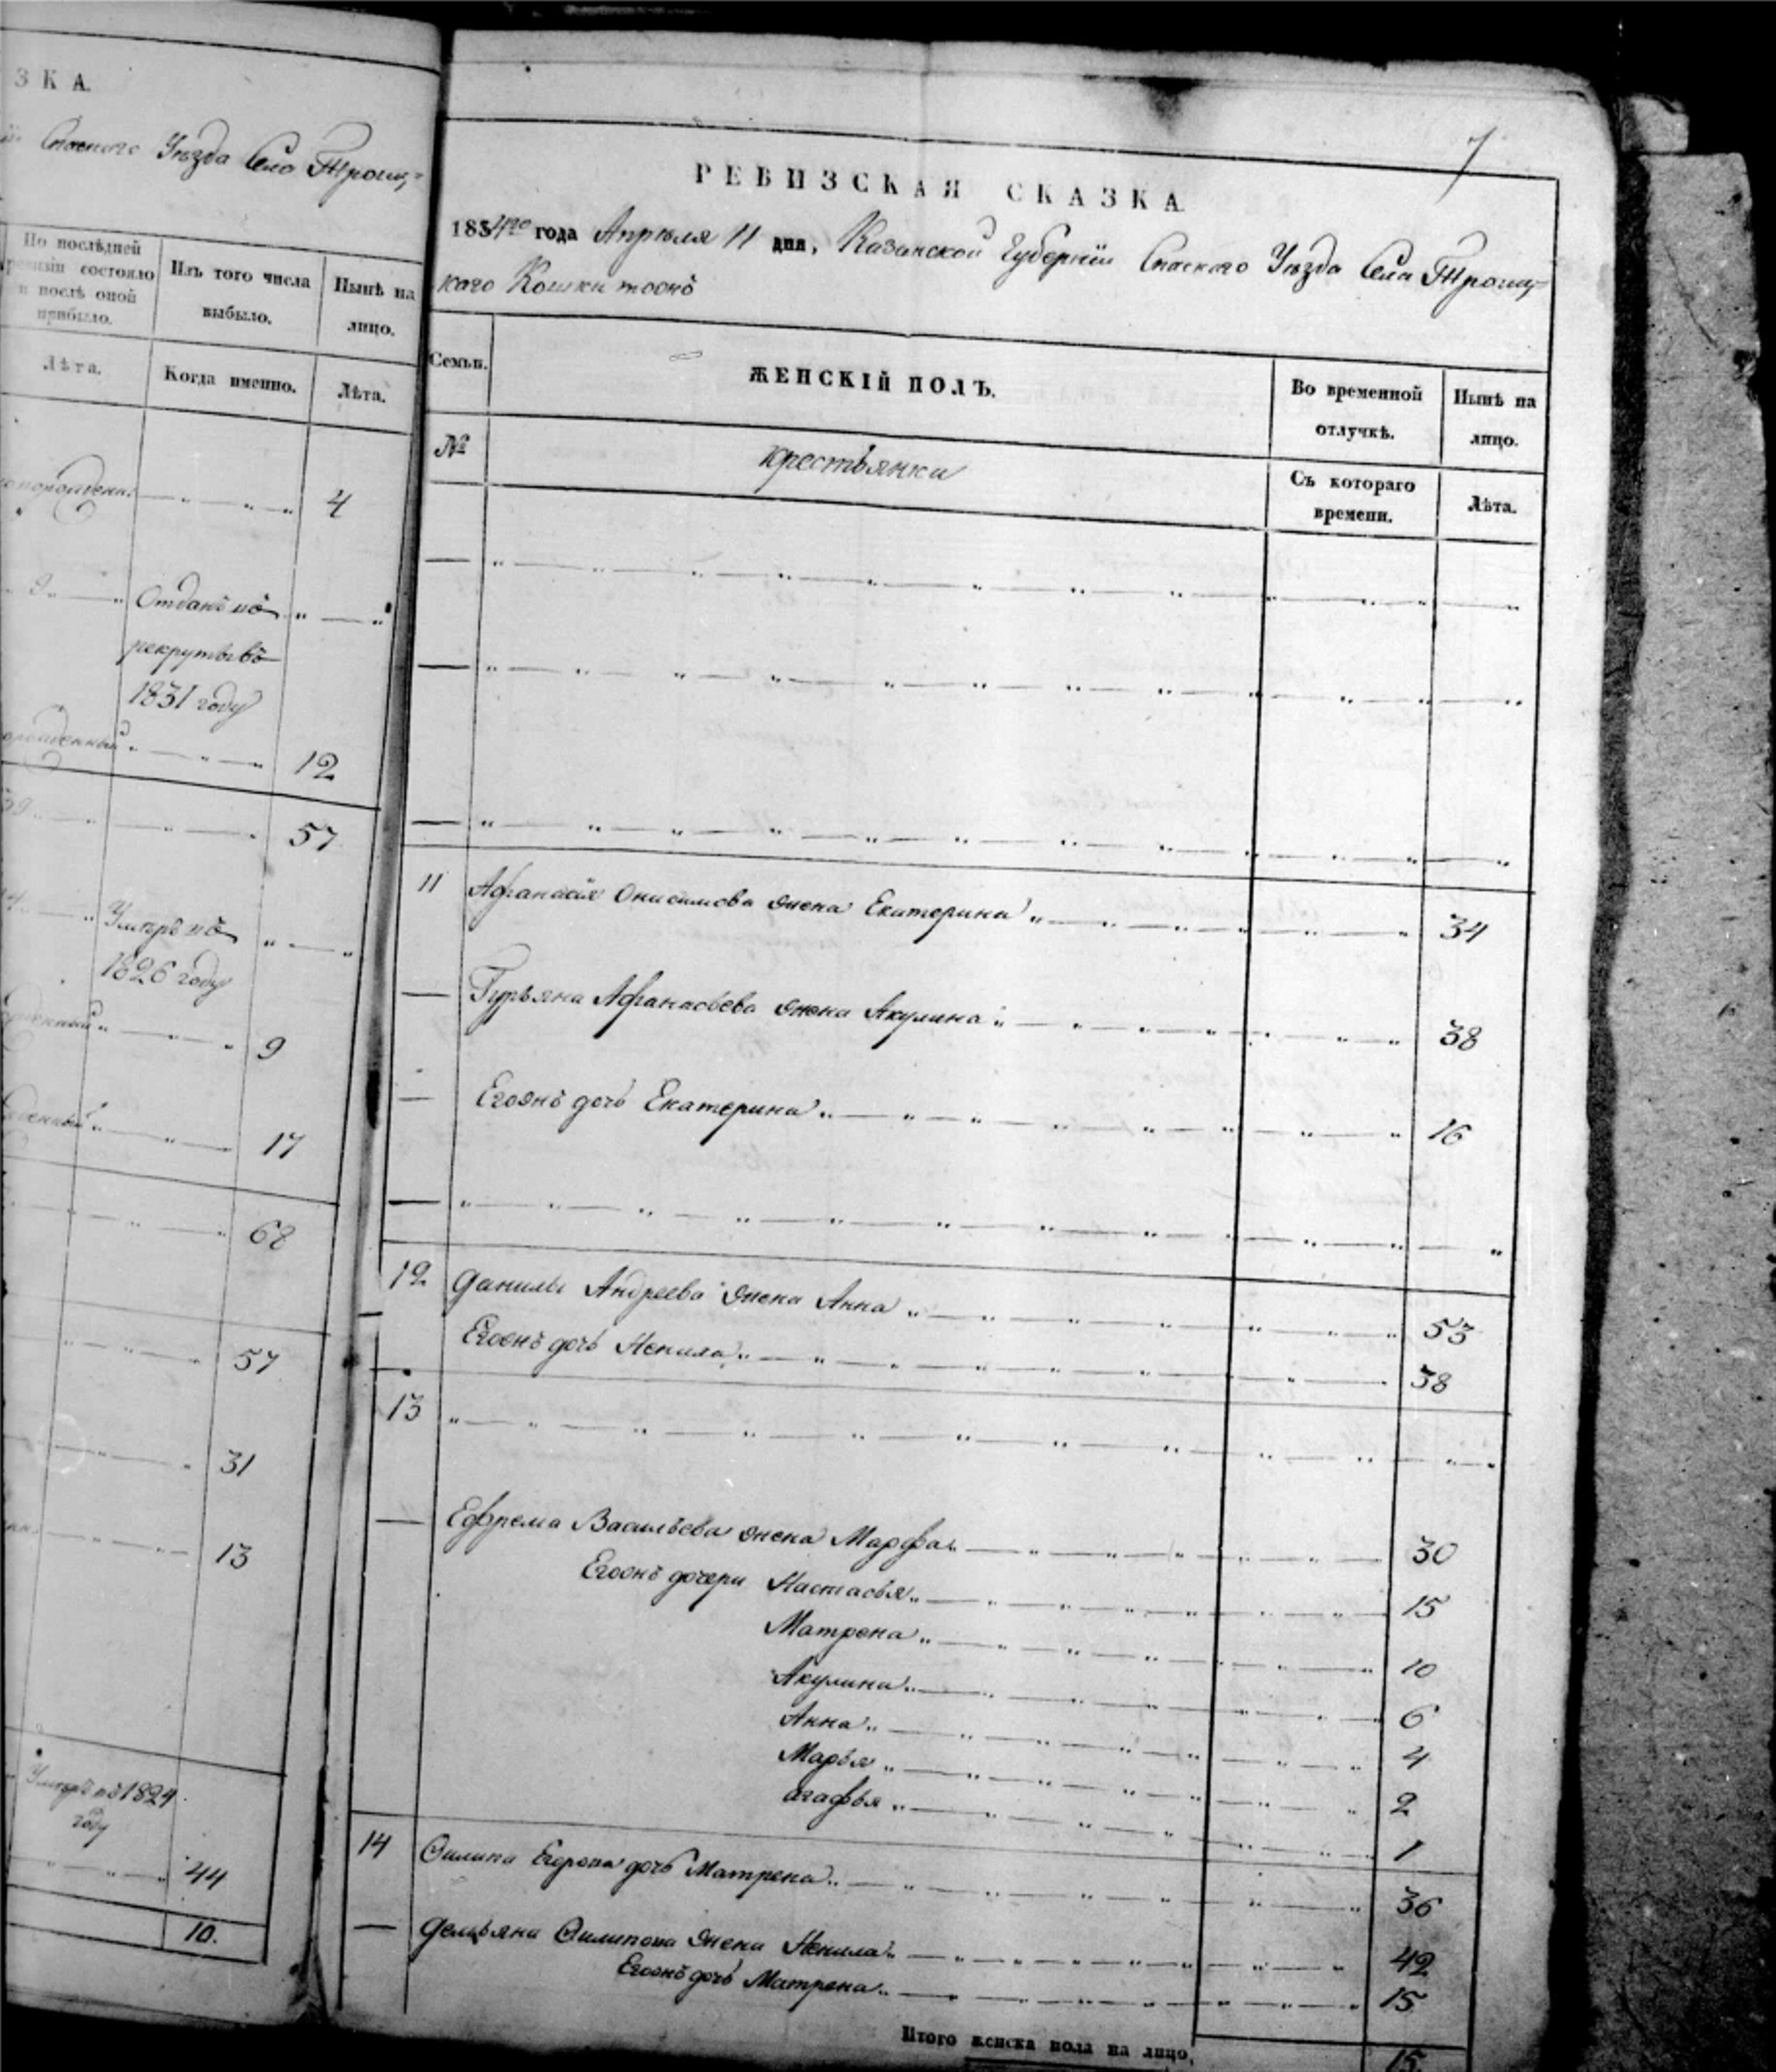 ЗКА.
Спаскаго Уѣзда Села Троиц-
По послѣдней
ревизіи состояло
и послѣ оной
прибыло.
Изъ того числа
выбыло.
Нынѣ на
лицо.
Лѣта.
Когда именно.
Лѣта.
4
Отданъ въ
рекруты въ
1831 году
12
57
Умеръ въ
1826 году
9
17
68
57
31
13
Умеръ въ 1824
году
44
10.
7
РЕВИЗСКАЯ СКАЗКА
1834го года Апрѣля 11 дня, Казанской Губерніи Спаскаго Уѣзда Села Троиц-
каго тожъ
Семьи.
ЖЕНСКІЙ ПОЛЪ.
Во временной
отлучкѣ.
Нынѣ на
лицо.
№
крестьянки
Съ котораго
времени.
Лѣта.
11 Афанасія Онисимова жена Екатерина 34
Гурьяна Афанасьева жена Акулина 38
Егожъ дочь Екатерина 16
12 Данилы Андреева жена Анна 53
Егожъ дочь Ненила 38
13
Ефрема Васильева жена Марфа 30
Егожъ дочери Настасья 15
Матрена 10
Акулина 6
Анна 4
Марья 2
Агафья 1
14 Филипа Егорова дочь Матрена 36
Демьяна Филипова жена Ненила 42
Егожъ дочь Матрена 15
Итого женска пола на лицо, 15.